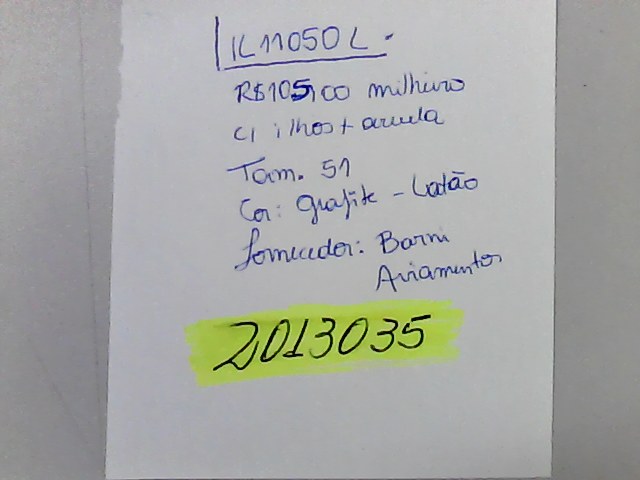 IL11050L.
R$105,00 milheiro
c/ ilhos + arruela
Tam. 51
Cor: grafite - Latão
fornecedor: Barni
Aviamentos
2013035